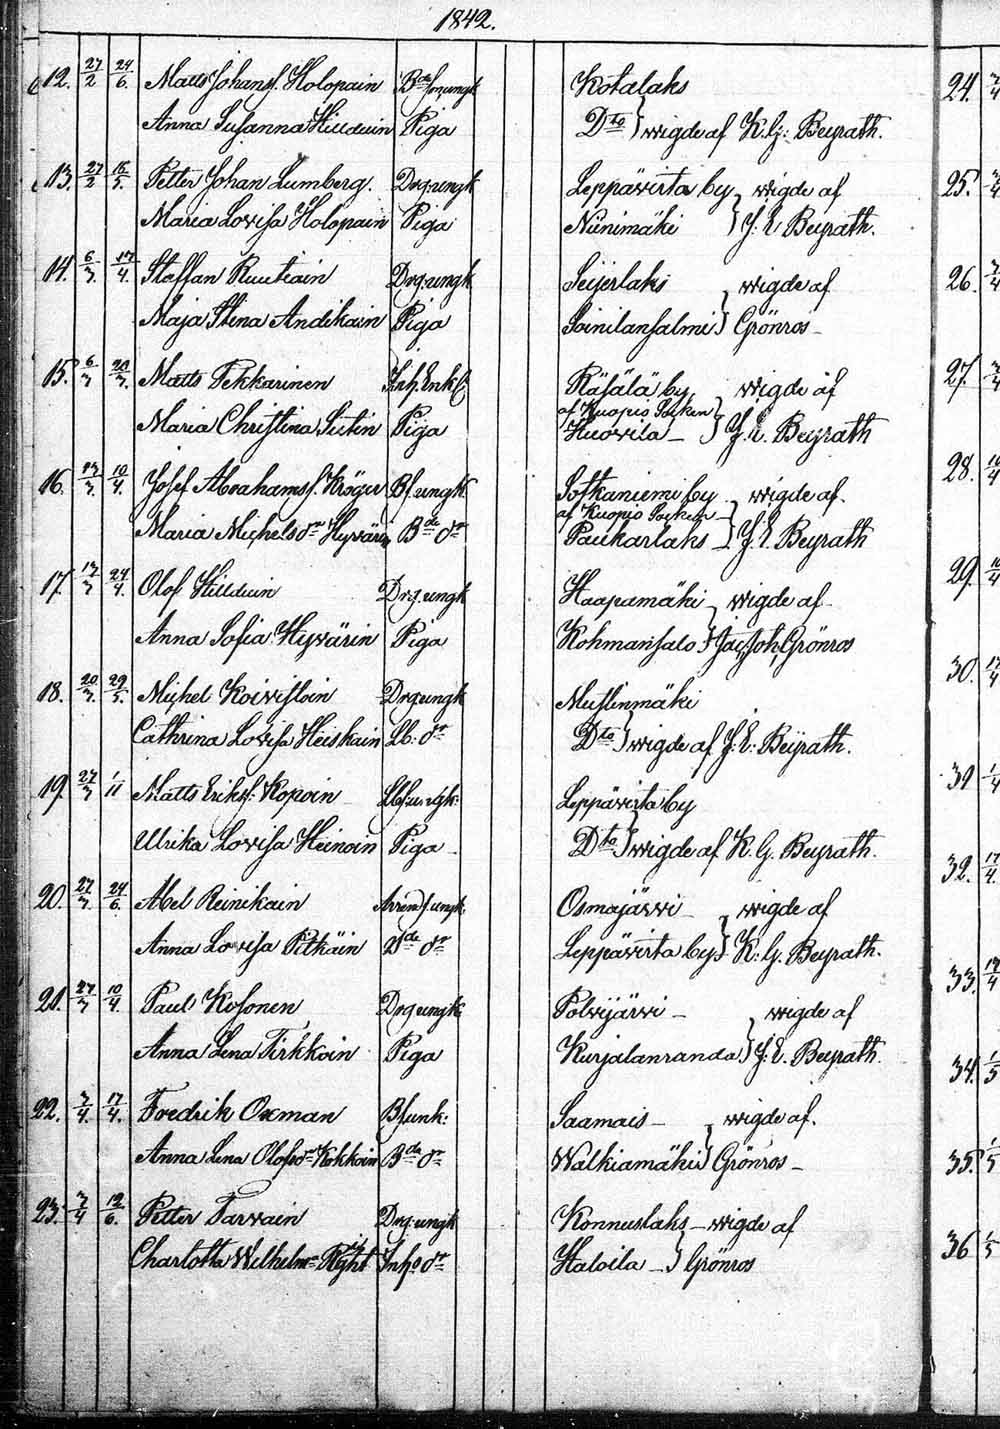 1842.
12. 27/2 24/6. Matts Johansſ. Holopain Bdeſonungk Kotalaks
Anna Suſanna Hillduin Piga Dto } wigde af K. G: Beyrath.
13. 27/2 16/5. Petter Johan Lumberg. Drg:ungk Leppävirta by wigde af
Maria Loviſa Holopain Piga Niinimäki } J. E Beyrath.
14. 6/3. 17/4. Staffan Ruutiain Drg:ungk Seijerlaks wigde af
Maja Stena Andikain Piga Soinilanſalmi } Grönros
15. 6/3 20/3. Matts Tekkarinen Inh. Enkl Räſälä by wigde af
af Kuopio Socken
Maria Chriſtina Sutin Piga Huowila } J. E. Beyrath
16. 13/3. 10/4. Joſef Abrahamsſ. Kröger Bſ.ungk Sotkaniemi by wigde af.
af Kuopio Socken
Maria Michelsdr Hyvärin Bde dr Paukarlaks } J. E Beyrath
17. 13/3 24/4. Olof Hillduin Drg.ungk Haapamäki wigde af
Anna Sofia Hyvärin Piga Kohmanſalo } Jac. Joh. Grönros
18. 20/3. 29/5. Michel Koiviſtoin Drg:ungk Muſtinmäki
Cathrina Loviſa Heiskain Lb: dr Dto } wigde af J: E: Beyrath.
19. 27/3 1/11 Matts Eriksſ: Kopoin Lbſ:ungk: Leppävirta by
Ulrika Loviſa Heinoin Piga Dto } wigde af K. G. Beyrath.
20. 27/3. 24/6. Abel Reinikain Arrend ſ.ungk. Osmajärvi wigde af
Anna Loviſa Pitkäin Bde dr Leppävirta by } K: G. Beyrath.
21. 27/3 10/4. Paul Koſonen Drg.ungk Polvijärvi wigde af
Anna Lena Tirkkoin Piga Kurjalanranda } J: E. Beyrath.
22. 3/4. 17/4. Fredrik Oxman Bſunk: Saamais wigde af.
Anna Lena Olofsdr Kokkoin Bde dr Walkiamäki } Grönros
23. 3/4 12/6. Petter Tarvain Drg:ungk Konnuslaks wigde af
Charlotta Wilhelm Inh dr Haloila } Grönros
24.
25.
26.
27.
28.
29.
30.
31
32.
33.
34.
35.
36